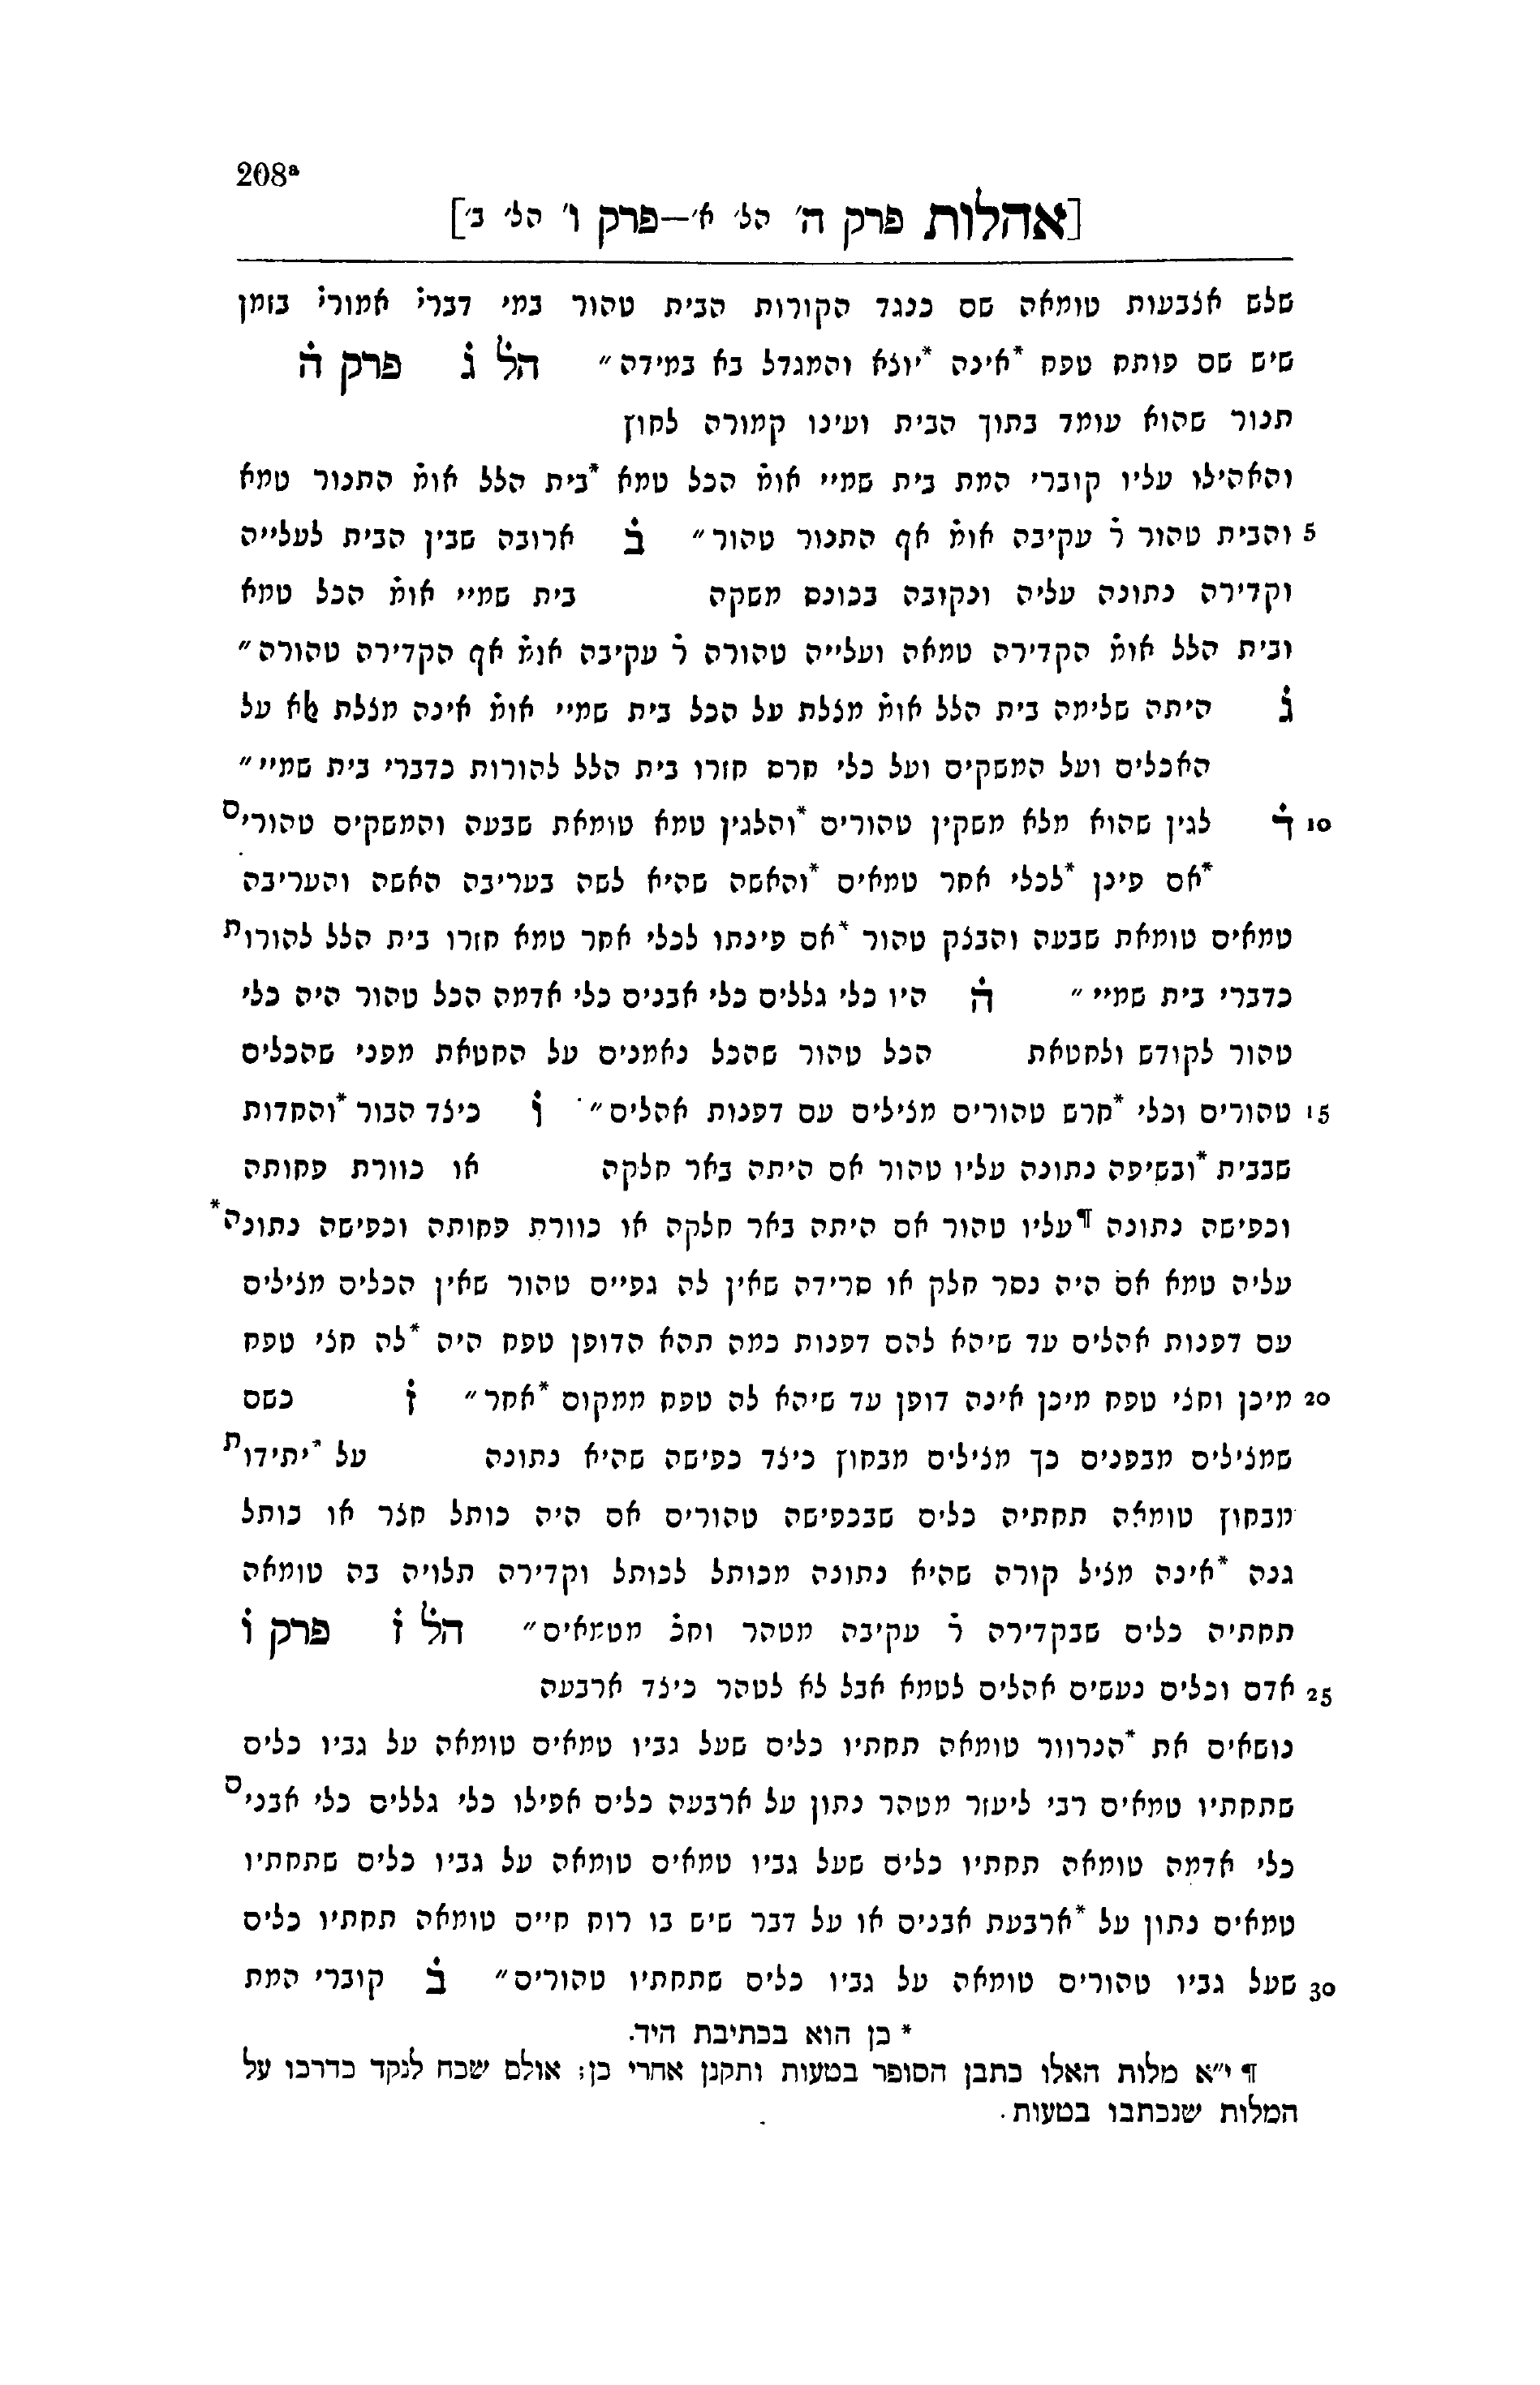 208a
[אהלות פרק ה' הל' א'—פרק ו' הל' ב']
שלש אצבעות טומאה שם כנגד הקורות הבית טהור במי דברי֗ אמורי֗ בזמן
שיש שם פותח טפח *אינה *יוצא והמגדל בא במידה״ הל֗ ג֗ פרק ה֗
תנור שהוא עומד בתוך הבית ועינו קמורה לחוץ
והאהילו עליו קוברי המת בית שמיי אומ֗ הכל טמא *בית הלל אומ֗ התנור טמא
5 והבית טהור ר֗ עקיבה אומ֗ אף התנור טהור״ ב֗ ארובה שבין הבית לעלייה
וקדירה נתונה עליה ונקובה בכונס משקה בית שמיי אומ֗ הכל טמא
ובית הלל אומ֗ הקדירה טמאה ועלייה טהורה ר֗ עקיבה אומ֗ אף הקדירה טהורה״
ג֗ היתה שלימה בית הלל אומ֗ מצלת על הכל בית שמיי אומ֗ אינה מצלת אלא על
האכלים ועל המשקים ועל כלי חרס חזרו בית הלל להורות כדברי בית שמיי״
10 ד֗ לגין שהוא מלא משקין טהורים *והלגין טמא טומאת שבעה והמשקים טהורים
*אם פינן *לכלי אחר טמאים *והאשה שהיא לשה בעריבה האשה והעריבה
טמאים טומאת שבעה והבצק טהור *אם פינתו לכלי אחר טמא חזרו בית הלל להורות
כדברי בית שמיי״ ה֗ היו כלי גללים כלי אבנים כלי אדמה הכל טהור היה כלי
טהור לקודש ולחטאת הכל טהור שהכל נאמנים על החטאת מפני שהכלים
15 טהורים וכלי *חרש טהורים מצילים עם דפנות אהלים״ ו֗ כיצד הבור *והחדות
שבבית *ובשיפה נתונה עליו טהור אם היתה באר חלקה או כוורת פחותה
וכפישה נתונה ¶עליו טהור אם היתה באר חלקה או כוורת פחותה וכפישה נתונה*
עליה טמא אם היה נסר חלק או סרידה שאין לה גפיים טהור שאין הכלים מצילים
עם דפנות אהלים עד שיהא להם דפנות כמה תהא הדופן טפח היה *לה חצי טפח
20 מיכן וחצי טפח מיכן אינה דופן עד שיהא לה טפח ממקום *אחר״ ז֗ כשם
שמצילים מבפנים כך מצילים מבחוץ כיצד כפישה שהיא נתונה על *יתידות
מבחוץ טומאה תחתיה כלים שבכפישה טהורים אם היה כותל חצר או כותל
גנה *אינה מציל קורה שהיא נתונה מכותל לכותל וקדירה תלויה בה טומאה
תחתיה כלים שבקדירה ר֗ עקיבה מטהר וחכ֗ מטמאים״ הל֗ ז֗ פרק ו֗
25 אדם וכלים נעשים אהלים לטמא אבל לא לטהר כיצד ארבעה
נושאים את *הנרוור טומאה תחתיו כלים שעל גביו טמאים טומאה על גביו כלים
שתחתיו טמאים רבי ליעזר מטהר נתון על ארבעה כלים אפילו כלי גללים כלי אבנים
כלי אדמה טומאה תחתיו כלים שעל גביו טמאים טומאה על גביו כלים שתחתיו
טמאים נתון על *ארבעת אבנים או על דבר שיש בו רוח חיים טומאה תחתיו כלים
30 שעל גביו טהורים טומאה על גביו כלים שתחתיו טהורים״ ב֗ קוברי המת
* כן הוא בכתיבת היד.
¶ י״א מלות האלו כתבן הסופר בטעות ותקנן אחרי כן; אולם שכח לנקד כדרכו על
המלות שנכתבו בטעות.